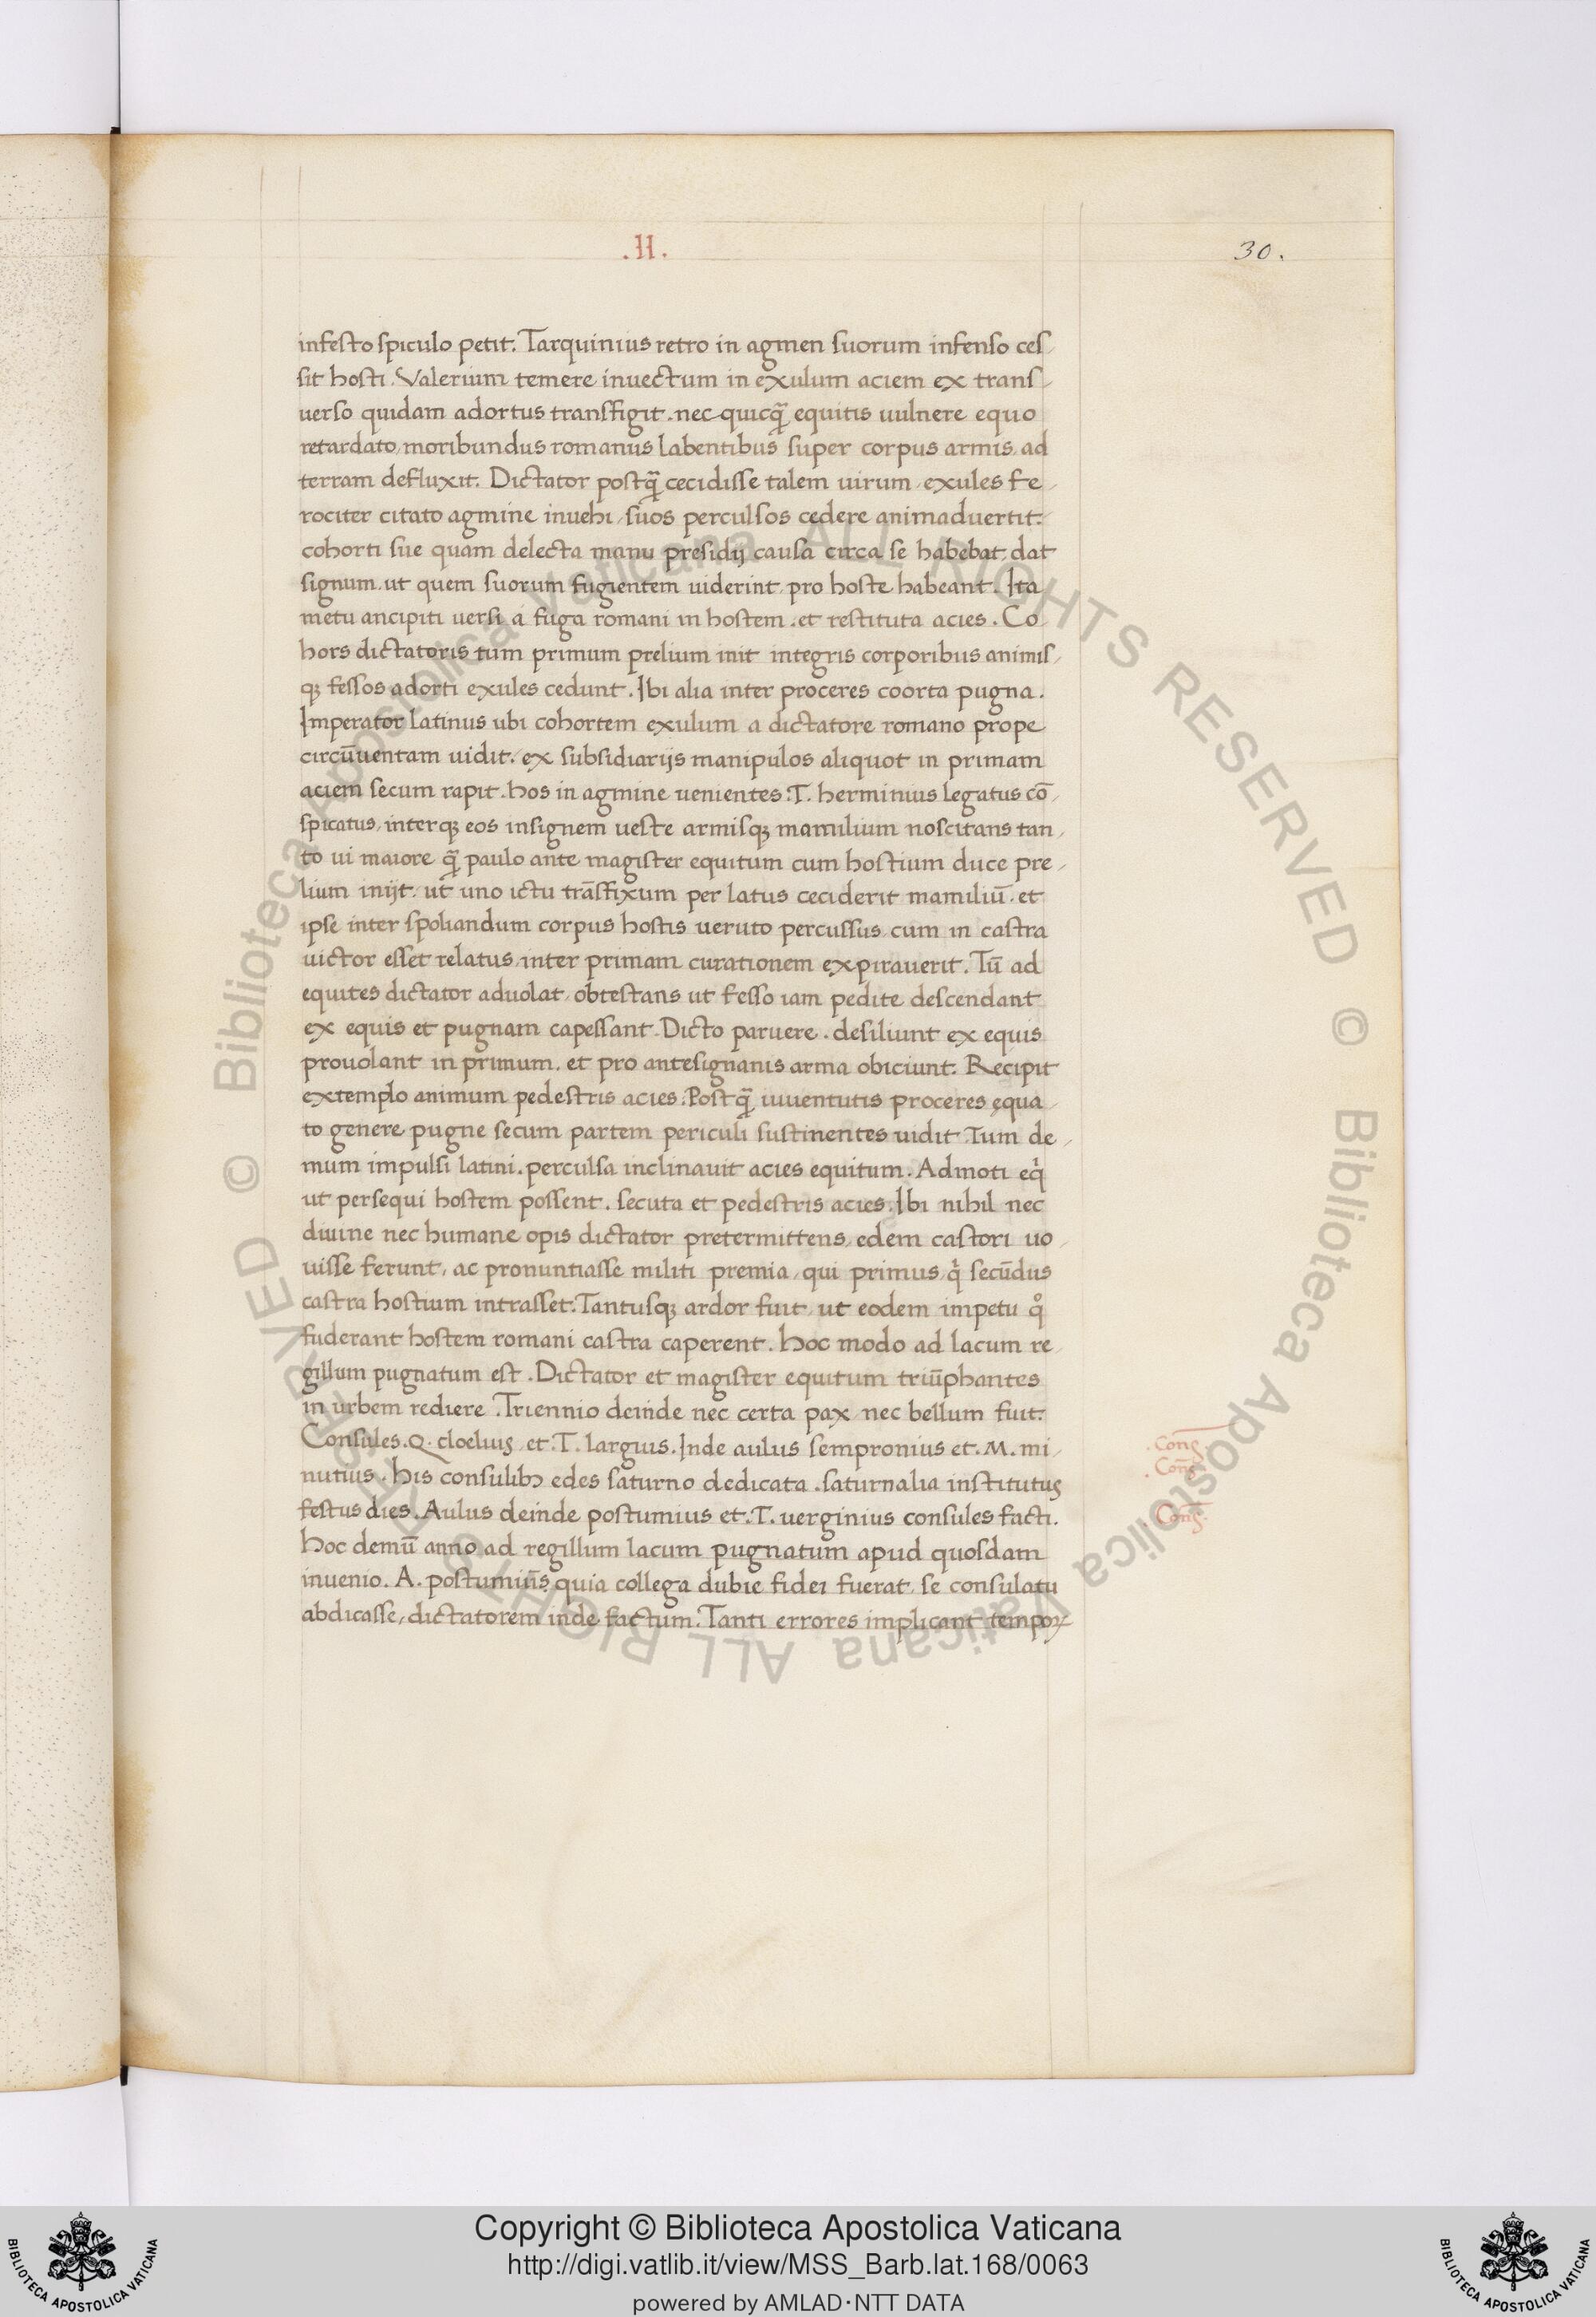 .II.
30.
infesto spiculo petit. Tarquinius retro in agmen suorum infenso ces/
sit hosti. Valerium temere inuectum in exulum aciem ex trans/
uerso quidam adortus transfigit. nec quicq̃ equitis uulnere equo
retardato, moribundus romanus labentibus super corpus armis, ad
terram defluxit. Dictator postq̃ cecidisse talem uirum, exules fe/
rociter citato agmine inuehi, suos perculsos cedere animaduertit.
cohorti sue quam delecta manu presidij causa circa se habebat, dat
signum, ut quem suorum fugientem uiderint, pro hoste habeant. Ita
metu ancipiti uersi á fuga romani in hostem. et restituta acies. Co
hors dictatoris tum primum prelium init integris corporibus animis/
qꝫ fessos adorti exules cedunt. Ibi alia inter proceres coorta pugna.
Imperator latinus ubi cohortem exulum a dictatore romano prope
circūuentam uidit. ex subsidiarijs manipulos aliquot in primam
aciem secum rapit. hos in agmine uenientes .T. herminius legatus cō/
spicatus, interqꝫ eos insignem ueste armisqꝫ mamilium noscitans tan/
to ui maiore q̃ paulo ante magister equitum cum hostium duce pre/
lium inijt, ut uno ictu trāsfixum per latus ceciderit mamiliū. et
ipse inter spoliandum corpus hostis ueruto percussus, cum in castra
uictor esset relatus, inter primam curationem expirauerit. Tū ad
equites dictator aduolat, obtestans ut fesso iam pedite descendant
ex equis et pugnam capessant. Dicto paruere. desiliunt ex equis
prouolant in primum. et pro antesignanis arma obiciunt. Recipit
extemplo animum pedestris acies. Postq̃ iuuentutis proceres ęqua/
to genere pugne secum partem periculi sustinentes uidit. Tum de/
mum impulsi latini. perculsa inclinauit acies equitum. Admoti eq̇
ut persequi hostem possent. secuta et pedestris acies. Ibi nihil nec
diuine nec humane opis dictator pretermittens, edem castori uo/
uisse ferunt, ac pronuntiasse militi premia, qui primus, q̇ secūdus
castra hostium intrasset. Tantusqꝫ ardor fuit, ut eodem impetu qͦ
fuderant hostem romani castra caperent. Hoc modo ad lacum re
gillum pugnatum est. Dictator et magister equitum triūphantes
in urbem rediere. Triennio deinde nec certa pax nec bellum fuit.
Consules .Q. cloelius, et .T. largius. Inde aulus sempronius et .M. mi/
nutius. his consulibꝫ edes saturno dedicata. saturnalia institutus
festus dies. Aulus deinde postumius et .T. uerginius consules facti.
Hoc demū anno ad regillum lacum pugnatum apud quosdam
inuenio. A. postumiūs, quia collega dubie fidei fuerat, se consulatu
abdicasse, dictatorem inde factum. Tanti errores implicant tempoꝝ
.Cons̄
.Cons̄
.Cons̄.
© Biblioteca Apostolica Vaticana ALL RIGHTS RESERVED © Biblioteca Apostolica Vaticana ALL RIGHTS RESERVED
Copyright © Biblioteca Apostolica Vaticana
http://digi.vatlib.it/view/MSS_Barb.lat.168/0063
powered by AMLAD·NTT DATA
BIBLIOTECA APOSTOLICA VATICANA
BIBLIOTECA APOSTOLICA VATICANA